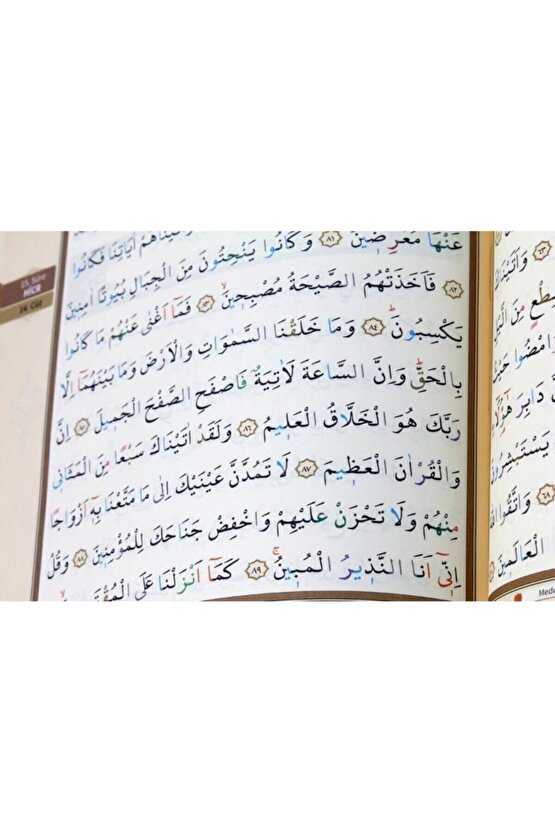 15. Sûre
HİCR
14. Cüz
اٰيَاتِنَا فَكَانُوا
عَنْهَا مُعْرِضٖينَۙ ﴿٨١﴾ وَكَانُوا يَنْحِتُونَ مِنَ الْجِبَالِ بُيُوتًا اٰمِنٖينَ
﴿٨٢﴾ فَاَخَذَتْهُمُ الصَّيْحَةُ مُصْبِحٖينَۙ ﴿٨٣﴾ فَمَٓا اَغْنٰى عَنْهُمْ مَا كَانُوا
يَكْسِبُونَؕ ﴿٨٤﴾ وَمَا خَلَقْنَا السَّمٰوَاتِ وَالْاَرْضَ وَمَا بَيْنَهُمَٓا اِلَّا
بِالْحَقِّؕ وَاِنَّ السَّاعَةَ لَاٰتِيَةٌ فَاصْفَحِ الصَّفْحَ الْجَمٖيلَ ﴿٨٥﴾ اِنَّ
رَبَّكَ هُوَ الْخَلَّاقُ الْعَلٖيمُ ﴿٨٦﴾ وَلَقَدْ اٰتَيْنَاكَ سَبْعًا مِنَ الْمَثَانٖي
وَالْقُرْاٰنَ الْعَظٖيمَ ﴿٨٧﴾ لَا تَمُدَّنَّ عَيْنَيْكَ اِلٰى مَا مَتَّعْنَا بِهٖٓ اَزْوَاجًا
مِنْهُمْ وَلَا تَحْزَنْ عَلَيْهِمْ وَاخْفِضْ جَنَاحَكَ لِلْمُؤْمِنٖينَ ﴿٨٨﴾ وَقُلْ
اِنّٖٓي اَنَا النَّذٖيرُ الْمُبٖينُۚ ﴿٨٩﴾ كَمَٓا اَنْزَلْنَا عَلَى